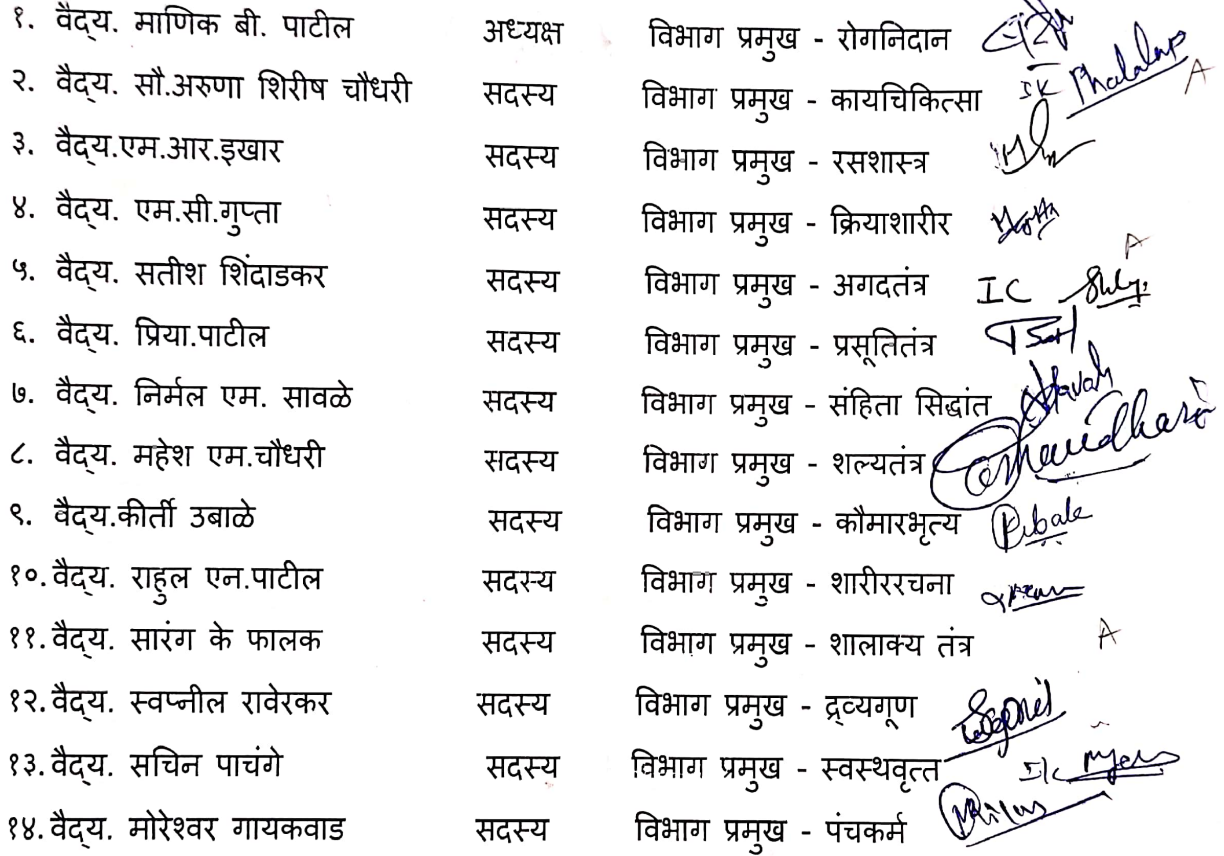 १. वैद्य. माणिक बी. पाटील अध्यक्ष विभाग प्रमुख - रोगनिदान
२. वैद्य. सौ.अरुणा शिरीष चौधरी सदस्य विभाग प्रमुख - कायचिकित्सा A
३. वैद्य.एम.आर.इखार सदस्य विभाग प्रमुख - रसशास्त्र
४. वैद्य. एम.सी.गुप्ता सदस्य विभाग प्रमुख - क्रियाशारीर
५. वैद्य. सतीश शिंदाडकर सदस्य विभाग प्रमुख - अगदतंत्र IC A
६. वैद्य. प्रिया.पाटील सदस्य विभाग प्रमुख - प्रसूतितंत्र
७. वैद्य. निर्मल एम. सावळे सदस्य विभाग प्रमुख - संहिता सिद्धांत
८. वैद्य. महेश एम.चौधरी सदस्य विभाग प्रमुख - शल्यतंत्र
९. वैद्य.कीर्ती उबाळे सदस्य विभाग प्रमुख - कौमारभृत्य
१०. वैद्य. राहुल एन.पाटील सदस्य विभाग प्रमुख - शारीररचना
११. वैद्य. सारंग के फालक सदस्य विभाग प्रमुख - शालाक्य तंत्र A
१२. वैद्य. स्वप्नील रावेरकर सदस्य विभाग प्रमुख - द्रव्यगूण
१३. वैद्य. सचिन पाचंगे सदस्य विभाग प्रमुख - स्वस्थवृत्त
१४. वैद्य. मोरेश्वर गायकवाड सदस्य विभाग प्रमुख - पंचकर्म